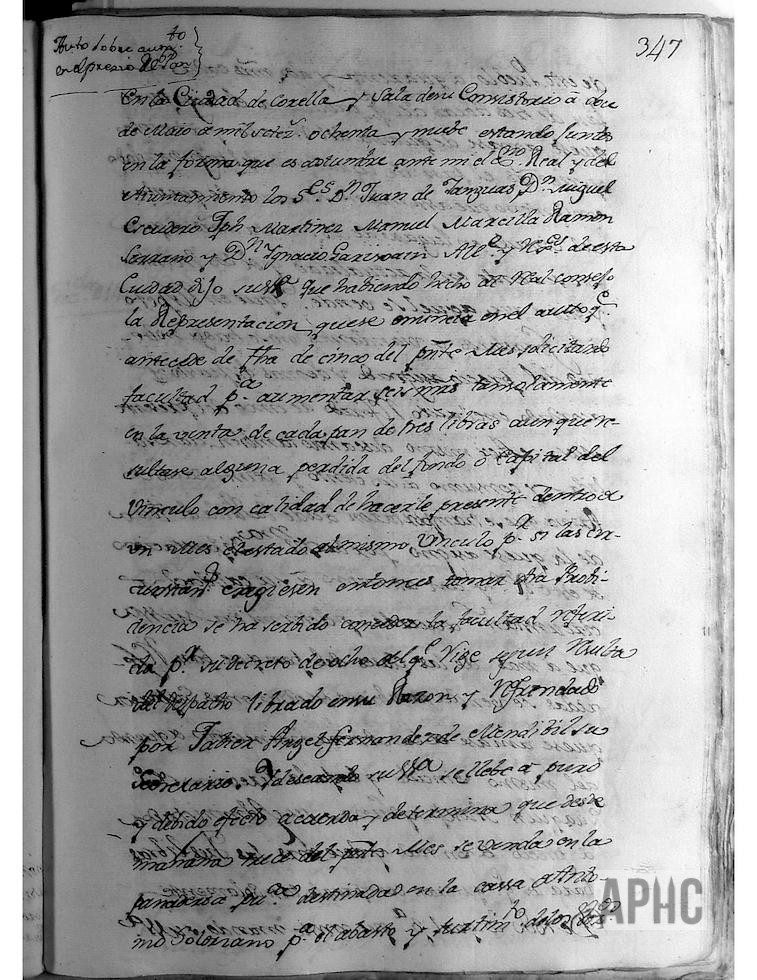 Auto sobre aum.to
en el precio del Pan
347
En la Ciudad de Corella y Sala de su Consistorio a doze
de Maio de mil setez.s ochenta y nuebe estando juntos
en la forma que es costumbre ante mi el Ss.no Real y del
Aiuntamiento los S.res D.n Juan de Tanzuas D.n Miguel
Escudero Jph Martinez Manuel Marcilla Ramon
Serrano y D.n Ignacio Garisoain Alc.e y Rex.es de esta
Ciudad dijo su SS.a que habiendo hecho al Real Consejo
la Representacion que se enuncia en el autto q.e
antecede de fha de cinco del pnte Mes solicitando
facultad p.a aumentar seis mrs tansolamente
en la venta de cada pan de tres libras aunque re-
sultase alguna perdida del fondo o Capital del
Vinculo con calidad de hacerle presente dentro de
un Mes el estado del mismo Vinculo p.a si las cir-
cunstan.s exigiesen entonces tomar otra Probi-
dencia se ha serbido conceder la facultad referi-
da p.r su decreto de ocho del q.e rige segun resulta
del despacho librado en su Razon y Refrendado
por Javier Angel Fernandez de Mendibil su
Secretario. Y deseando su SS.a se llebe a puro
y debido efecto acuerda y determina que desde
mañana trece del pnte Mes se venda en la
panadera pu.ca destinada en la cassa
mo Solorzano p.a el abasto y surtim.to de los
APHC